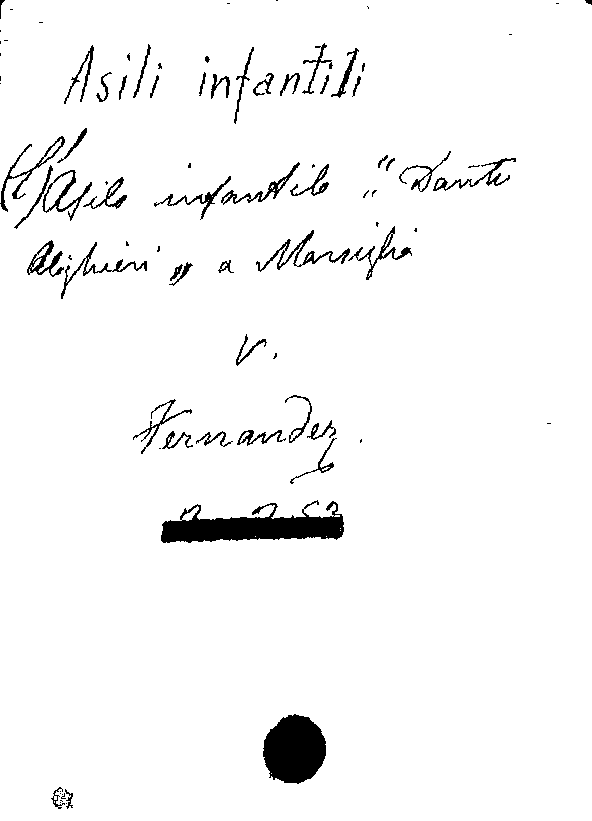 Asili infantili
(L')Asilo infantile "Dante
Alighieri" a Marsiglia
V.
Fernandez.